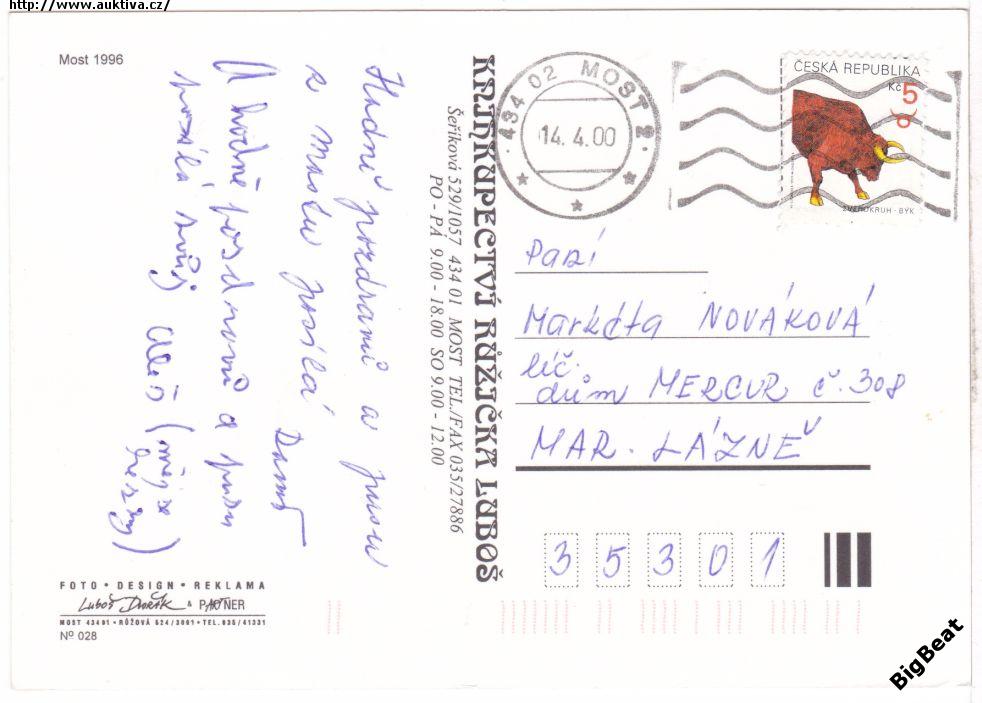 http://www.auktiva.cz/
Most 1996
Hodně pozdravů a pusu
z mostu posílá
Hodně pozdravů a pusu
posílá svůj Aleš (měj se
hezky)
KNIHKUPECTVÍ RŮŽIČKA LUBOŠ
Šeříková 529/1057 434 01 MOST TEL./FAX 035/27886
PO - PÁ 9.00 - 18.00 SO 9.00 - 12.00
434 02 MOST 2
14.4.00
ČESKÁ REPUBLIKA
Kč 5
ZVĚROKRUH - BÝK
Paní
Markéta NOVÁKOVÁ
léč.
dům MERCUR č. 308
MAR. LÁZNĚ
35301
FOTO • DESIGN • REKLAMA
Luboš Dvořák & PARTNER
MOST 43401 • RŮŽOVÁ 524/3001 • TEL. 035/41331
Nº 028
BigBeat